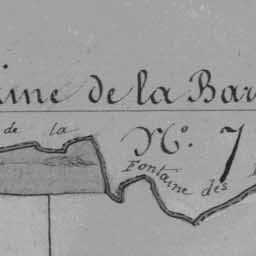 de la Bar
de la
N.º 7
Fontaine des